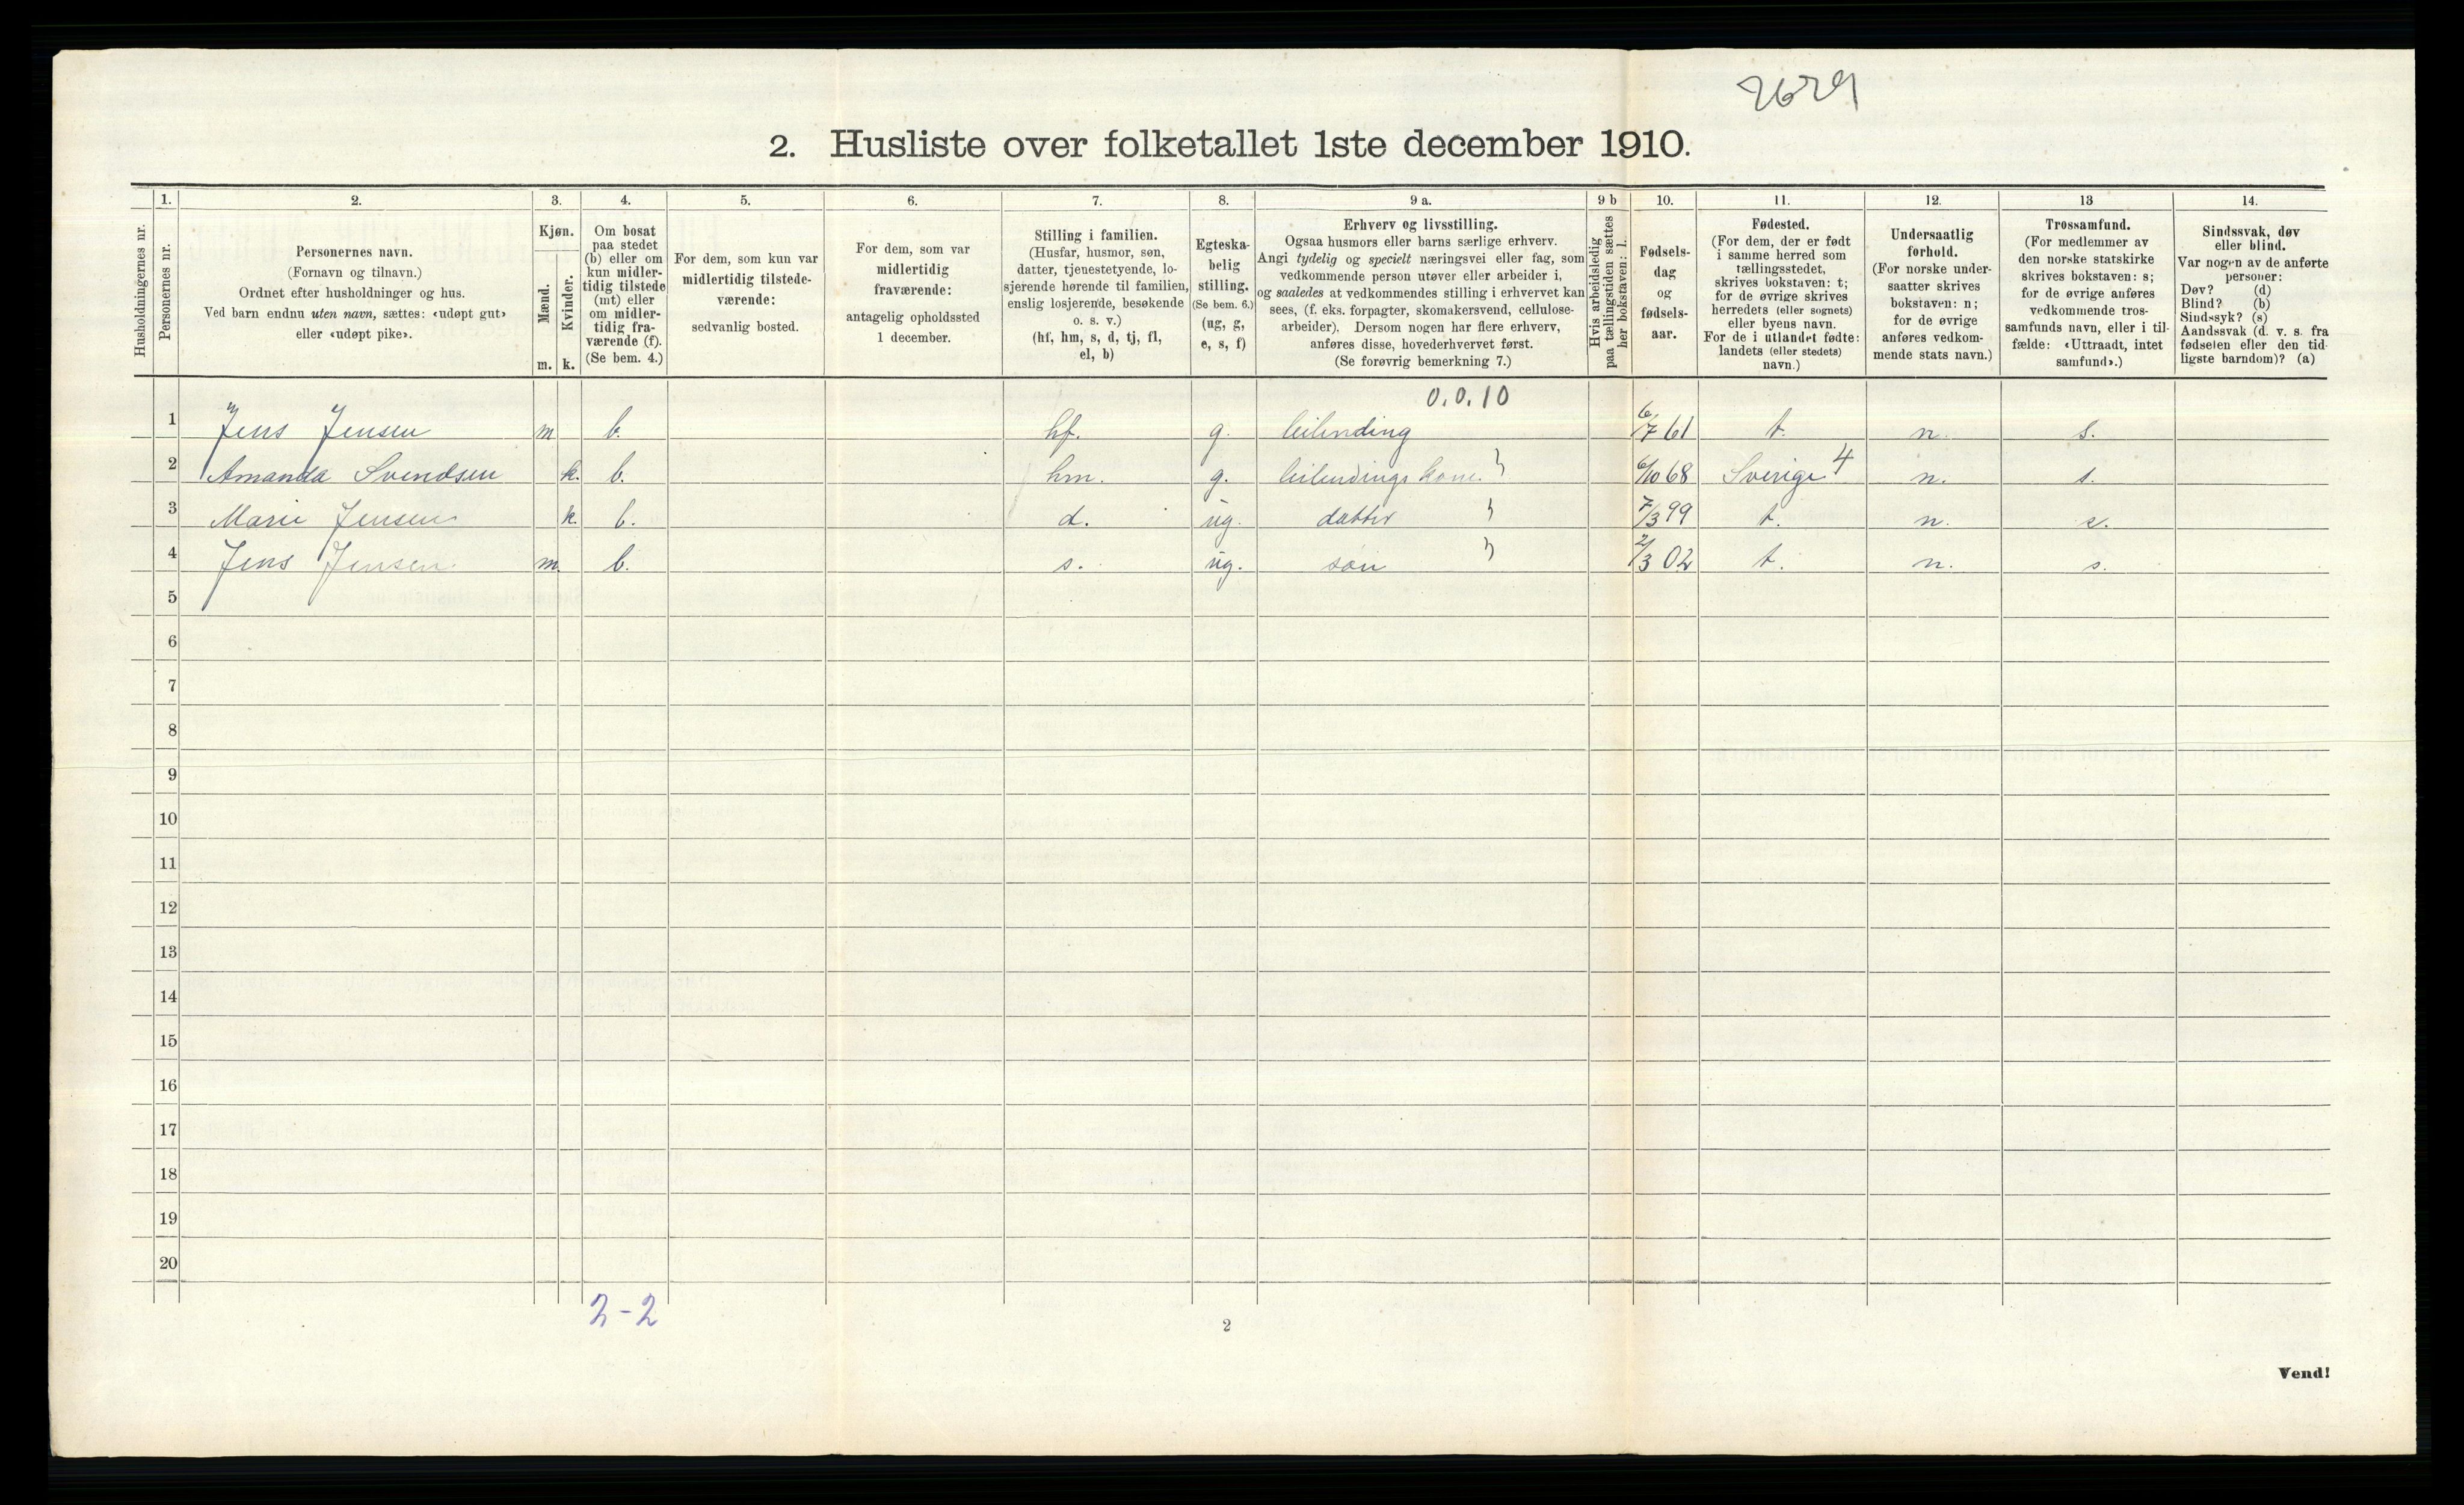 2629
2. Husliste over folketallet 1ste december 1910.
Husholdningernes nr.
1. Personernes nr.
2. Personernes navn.
(Fornavn og tilnavn.)
Ordnet efter husholdninger og hus.
Ved barn endnu uten navn, sættes: «udøpt gut»
eller «udøpt pike».
3. Kjøn.
Mænd. m.
Kvinder. k.
4. Om bosat
paa stedet
(b) eller om
kun midler-
tidig tilstede
(mt) eller
om midler-
tidig fra-
værende (f).
(Se bem. 4.)
5. For dem, som kun var
midlertidig tilstede-
værende:
sedvanlig bosted.
6. For dem, som var
midlertidig
fraværende:
antagelig opholdssted
1 december.
7. Stilling i familien.
(Husfar, husmor, søn,
datter, tjenestetyende, lo-
sjerende hørende til familien,
enslig losjerende, besøkende
o. s. v.)
(hf, hm, s, d, tj, fl,
el, b)
8. Egteska-
belig
stilling.
(Se bem. 6.)
(ug, g,
e, s, f)
9 a. Erhverv og livsstilling.
Ogsaa husmors eller barns særlige erhverv.
Angi tydelig og specielt næringsvei eller fag, som
vedkommende person utøver eller arbeider i,
og saaledes at vedkommendes stilling i erhvervet kan
sees, (f. eks. forpagter, skomakersvend, cellulose-
arbeider). Dersom nogen har flere erhverv,
anføres disse, hovederhvervet først.
(Se forøvrig bemerkning 7.)
9 b Hvis arbeidsledig
paa tællingstiden sættes
her bokstaven: l.
10. Fødsels-
dag
og
fødsels-
aar.
11. Fødested.
(For dem, der er født
i samme herred som
tællingsstedet,
skrives bokstaven: t;
for de øvrige skrives
herredets (eller sognets)
eller byens navn.
For de i utlandet fødte:
landets (eller stedets)
navn.)
12. Undersaatlig
forhold.
(For norske under-
saatter skrives
bokstaven: n;
for de øvrige
anføres vedkom-
mende stats navn.)
13 Trossamfund.
(For medlemmer av
den norske statskirke
skrives bokstaven: s;
for de øvrige anføres
vedkommende tros-
samfunds navn, eller i til-
fælde: «Uttraadt, intet
samfund».)
14. Sindssvak, døv
eller blind.
Var nogen av de anførte
personer:
Døv? (d)
Blind? (b)
Sindssyk? (s)
Aandssvak (d. v. s. fra
fødselen eller den tid-
ligste barndom)? (a)
0.0.10
1 Jens Jensen m b. hf. g. leilending 6/7 61 t. n. s.
2 Amanda Svendsen k. b. hm. g. leilendings kone. 6/10 68 Sverige 4 n. s.
3 Marie Jensen k. b. d. ug. datter 7/3 99 t. n. s.
4 Jens Jensen m. b. s. ug. søn 2/3 02 t. n. s.
5
6
7
8
9
10
11
12
13
14
15
16
17
18
19
20
2-2
2
Vend!